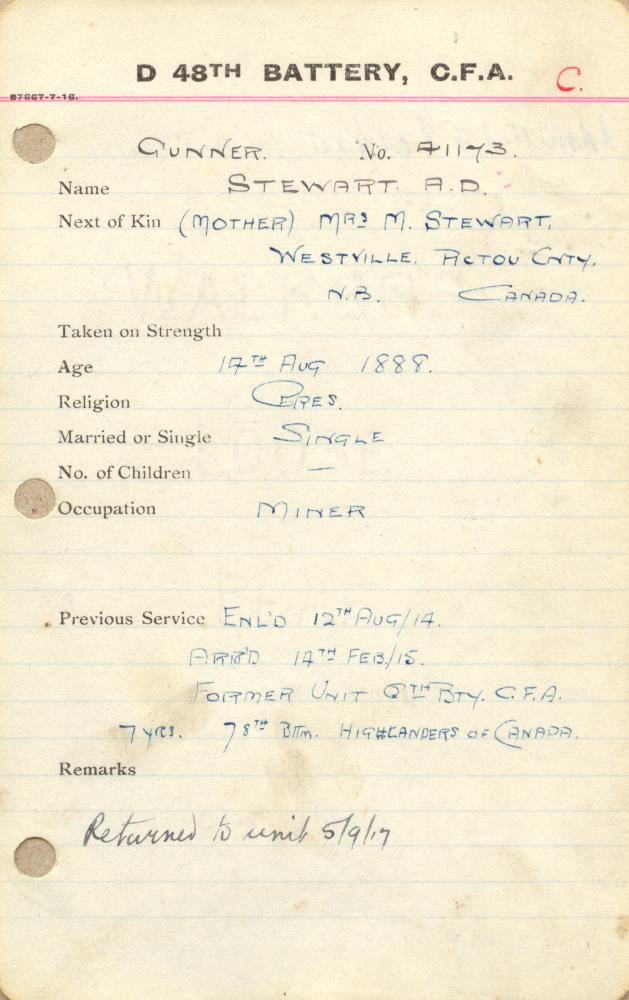 D 48TH BATTERY, C.F.A. C.
87667-7-16.
GUNNER. No. 41173.
Name STEWART. A.D.
Next of Kin (MOTHER) MRS M. STEWART,
WESTVILLE, PICTOU CNTY.
N.B. CANADA.
Taken on Strength
Age 17TH AUG 1888.
Religion PRES.
Married or Single SINGLE
No. of Children —
Occupation MINER
Previous Service ENL'D 12TH AUG/14.
ARR'D 14TH FEB/15.
FORMER UNIT BTY. C.F.A.
7 YRS. 78TH BTTN. HIGHLANDERS OF CANADA.
Remarks
Returned to unit 5/9/17